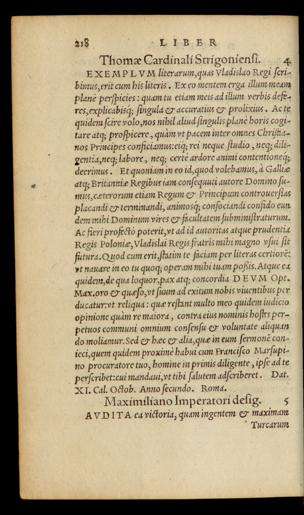 218 LIBER
Thomæ Cardinali Strigoniensi. 4
EXEMPLVM literarum, quas Vladislao Regi scri-
bimus, erit cum his literis. Ex eo mentem erga illum meam
planè perspicies: quam tu etiam meis ad illum verbis defe-
res, explicabisq; singula & accuratius & prolixius. Ac te
quidem scire volo, nos nihil aliud singulis planè horis cogi-
tare atq; prospicere, quàm vt pacem inter omnes Christia-
nos Principes conficiamus: eiq; rei neque studio, neq; dili-
gentia, neq; labore, neq; certè ardore animi contentioneq;
deerimus. Et quoniam in eo id, quod volebamus, à Galliæ
atq; Britanniæ Regibus iam consequuti autore Domino su-
mus, cæterorum etiam Regum & Principum controuersias
placandi & terminandi, animosq; consociandi confido eun
dem mihi Dominum vires & facultatem subministraturum.
Ac fieri profectò poterit, vt ad id autoritas atque prudentia
Regis Poloniæ, Vladislai Regis fratris mihi magno vsui sit
futura. Quod cum erit, statim te faciam per literas certiorē:
vt nauare in eo tu quoq; operam mihi tuam possis. Atque ea
quidem, de qua loquor, pax atq; concordia DEVM Opt.
Max. oro & quæso, vt suum ad exitum nobis viuentibus per
ducatur: vt reliqua: quæ restant multo meo quidem iudicio
opinione quàm re maiora, contra eius nominis hostes per-
petuos communi omnium consensu & voluntate aliquan
do moliamur. Sed & hæc & alia, quæ in eum sermonē con-
ieci, quem quidem proximè habui cum Francisco Marsupi-
no procuratore tuo, homine in primis diligente, ipse ad te
perscribet: cui mandaui, vt tibi salutem adscriberet. Dat.
XI. Cal. Octob. Anno secundo. Roma.
Maximiliano Imperatori desig. 5
AVDITA ea victoria, quam ingentem & maximam
Turcarum